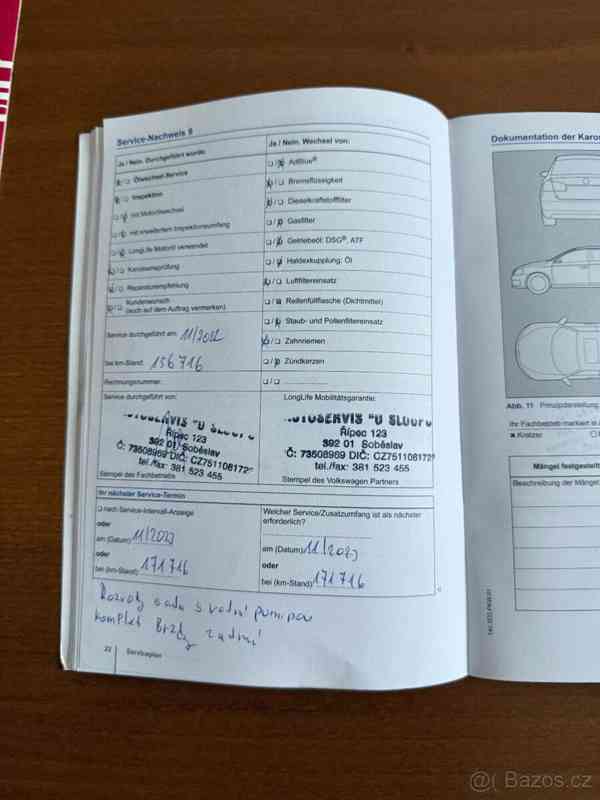 Service-Nachweis 9
Ja / Nein. Durchgeführt wurde:
Ölwechsel-Service
Inspektion
mit Motorölwechsel
mit erweitertem Inspektionsumfang
LongLife Motoröl verwendet
Karosserieprüfung
Reparaturempfehlung
Kundenwunsch
(auch auf dem Auftrag vermerken)
Service durchgeführt am: 11/2022
bei km-Stand: 156716
Rechnungsnummer:
Service durchgeführt von:
AUTOSERVIS "U SLOUPU
Řípec 123
392 01 Soběslav
Č: 73508969 DIČ: CZ751108172
tel./fax: 381 523 455
Stempel des Fachbetriebs
Ja / Nein. Wechsel von:
AdBlue®
Bremsflüssigkeit
Dieselkraftstofffilter
Gasfilter
Getriebeöl: DSG®, ATF
Haldexkupplung: Öl
Luftfiltereinsatz
Reifenfüllflasche (Dichtmittel)
Staub- und Pollenfiltereinsatz
Zahnriemen
Zündkerzen
LongLife Mobilitätsgarantie:
AUTOSERVIS "U SLOUPU
Řípec 123
392 01 Soběslav
Č: 73508969 DIČ: CZ751108172
tel./fax: 381 523 455
Stempel des Volkswagen Partners
Ihr nächster Service-Termin
nach Service-Intervall-Anzeige
oder
am (Datum) 11/2023
oder
bei (km-Stand) 171716
Welcher Service/Zusatzumfang ist als nächster
erforderlich?
am (Datum) 11/2023
oder
bei (km-Stand) 171716
Rozvody sada s vodní pumpou
komplet Brzdy zadní
22 Serviceplan
Dokumentation der Karos
Abb. 11 Prinzipdarstellung
Ihr Fachbetrieb markiert in
Kratzer
Mängel festgestellt
Beschreibung der Mängel
Bazos.cz